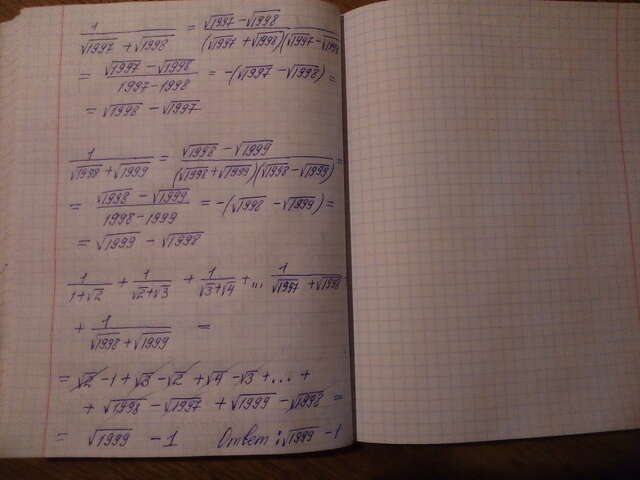 1/(√1997 + √1998) = (√1997 - √1998)/((√1997 + √1998)(√1997 - √1998
= (√1997 - √1998)/(1997 - 1998) = -(√1997 - √1998) =
= √1998 - √1997
1/(√1998 + √1999) = (√1998 - √1999)/((√1998 + √1999)(√1998 - √1999)) =
= (√1998 - √1999)/(1998 - 1999) = -(√1998 - √1999) =
= √1999 - √1998
1/(1+√2) + 1/(√2+√3) + 1/(√3+√4) + ... 1/(√1997 + √1998)
+ 1/(√1998 + √1999) =
= √2 - 1 + √3 - √2 + √4 - √3 + ... +
+ √1998 - √1997 + √1999 - √1998 =
= √1999 - 1 Ответ: √1999 - 1